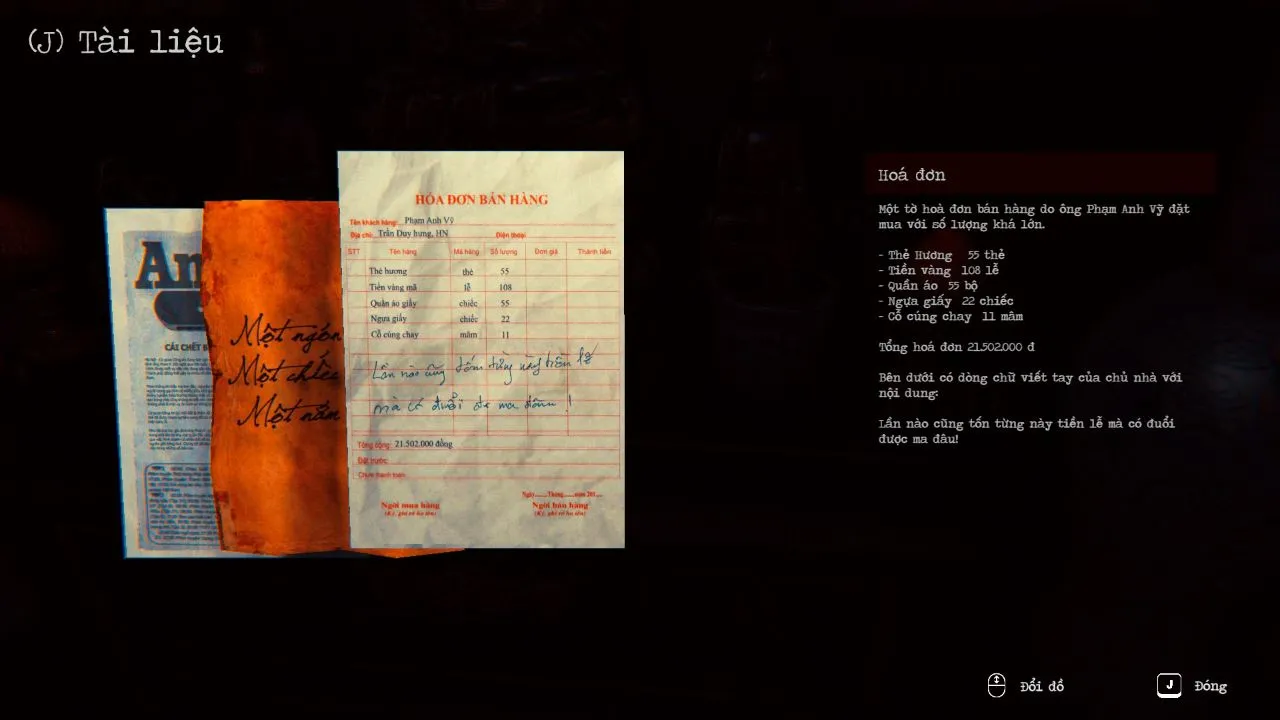 (J) Tài liệu
An
CÁI CHẾT B
Một ngón
Một chiếc
Một nấm
HÓA ĐƠN BÁN HÀNG
Tên khách hàng: Phạm Anh Vỹ
Địa chỉ: Trần Duy hưng, HN Điện thoại
STT Tên hàng Mã hàng Số lượng Đơn giá Thành tiền
Thẻ hương thẻ 55
Tiền vàng mã lễ 108
Quần áo giấy chiếc 55
Ngựa giấy chiếc 22
Cỗ cúng chay mâm 11
Lần nào cũng tốn từng này tiền lễ
mà có đuổi được ma đâu!
Tổng cộng: 21.502.000 đồng
Đặt trước:
Chưa thanh toán:
Ngày......Tháng......năm 201....
Ngời mua hàng Ngời bán hàng
(Ký, ghi rõ họ tên) (Ký, ghi rõ họ tên)
Hoá đơn
Một tờ hoá đơn bán hàng do ông Phạm Anh Vỹ đặt
mua với số lượng khá lớn.
- Thẻ Hương 55 thẻ
- Tiền vàng 108 lễ
- Quần áo 55 bộ
- Ngựa giấy 22 chiếc
- Cỗ cúng chay 11 mâm
Tổng hoá đơn 21.502.000 đ
Bên dưới có dòng chữ viết tay của chủ nhà với
nội dung:
Lần nào cũng tốn từng này tiền lễ mà có đuổi
được ma đâu!
Đổi đồ
J Đóng